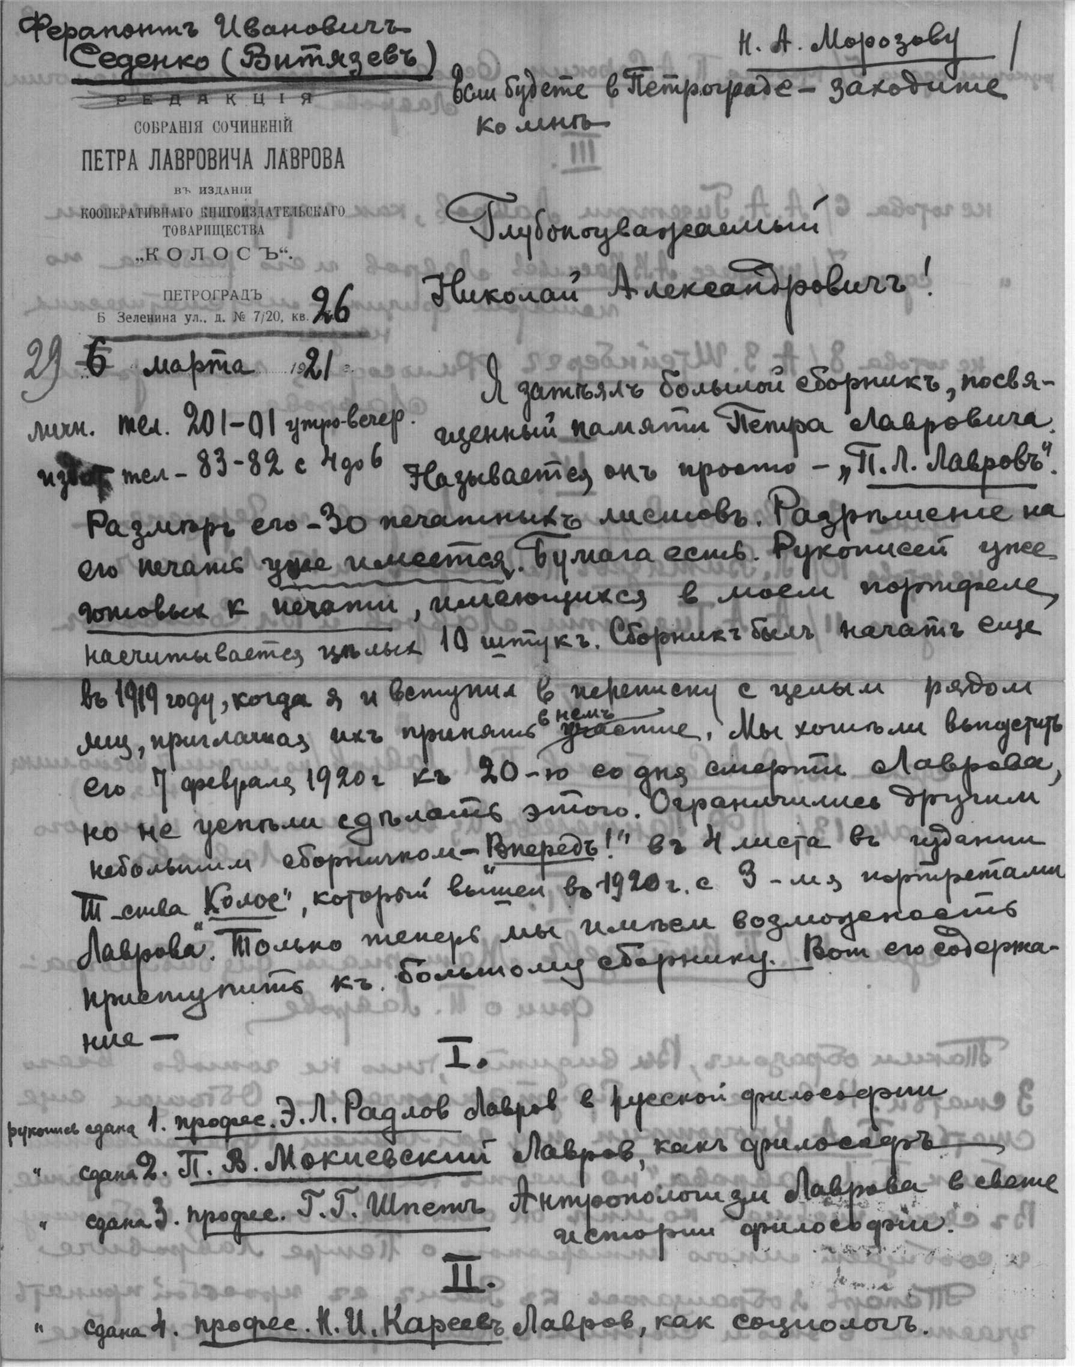 Ферапонтъ Ивановичъ
Седенко (Витязевъ)
Н. А. Морозову
Если будете в Петрограде – заходите
ко мнѣ
РЕДАКЦІЯ
СОБРАНІЯ СОЧИНЕНІЙ
ПЕТРА ЛАВРОВИЧА ЛАВРОВА
ВЪ ИЗДАНІИ
КООПЕРАТИВНАГО КНИГОИЗДАТЕЛЬСКАГО
ТОВАРИЩЕСТВА
„КОЛОСЪ“.
ПЕТРОГРАДЪ
Б Зеленина ул., д. № 7/20, кв. 26
29 6 марта 1921
личн. тел. 201-01 утро-вечер.
тел – 83-82 с 4 до 6
Глубокоуважаемый
Николай Александровичъ!
Я затѣялъ большой сборникъ, посвя-
щенный памяти Петра Лавровича.
Называется онъ просто – „П. Л. Лавровъ“.
Размѣръ его – 30 печатныхъ листовъ. Разрѣшение на
его печать уже имеется. Бумага есть. Рукописей уже
готовых к печати, имеющихся в моем портфеле,
насчитывается цѣлых 10 штукъ. Сборникъ былъ начатъ еще
въ 1919 году, когда я и вступил в переписку с целым рядом
лиц, приглашая ихъ принять в немъ участие. Мы хотѣли выпустить
его 7 февраля 1920 г къ 20-ю со дня смерти Лаврова,
но не успѣли сдѣлать этого. Ограничились другим
небольшим сборничком – Впередъ!" въ 4 листа въ издании
Т-ства Колос", который вышел въ 1920 г. с 3-мя портретами
Лаврова". Только теперь мы имѣем возможность
приступить къ большому сборнику. Вот его содержа-
ние —
I.
рукопись сдана 1. профес. Э. Л. Радлов Лавров в русской философии
" сдана 2. П. В. Мокиевский Лавров, какъ философъ
" сдана 3. профес. Г. Г. Шпетъ Антропологизм Лаврова в свете
истории философии.
II.
" сдана 4. профес. Н. И. Кареевъ Лавров, как социологъ.